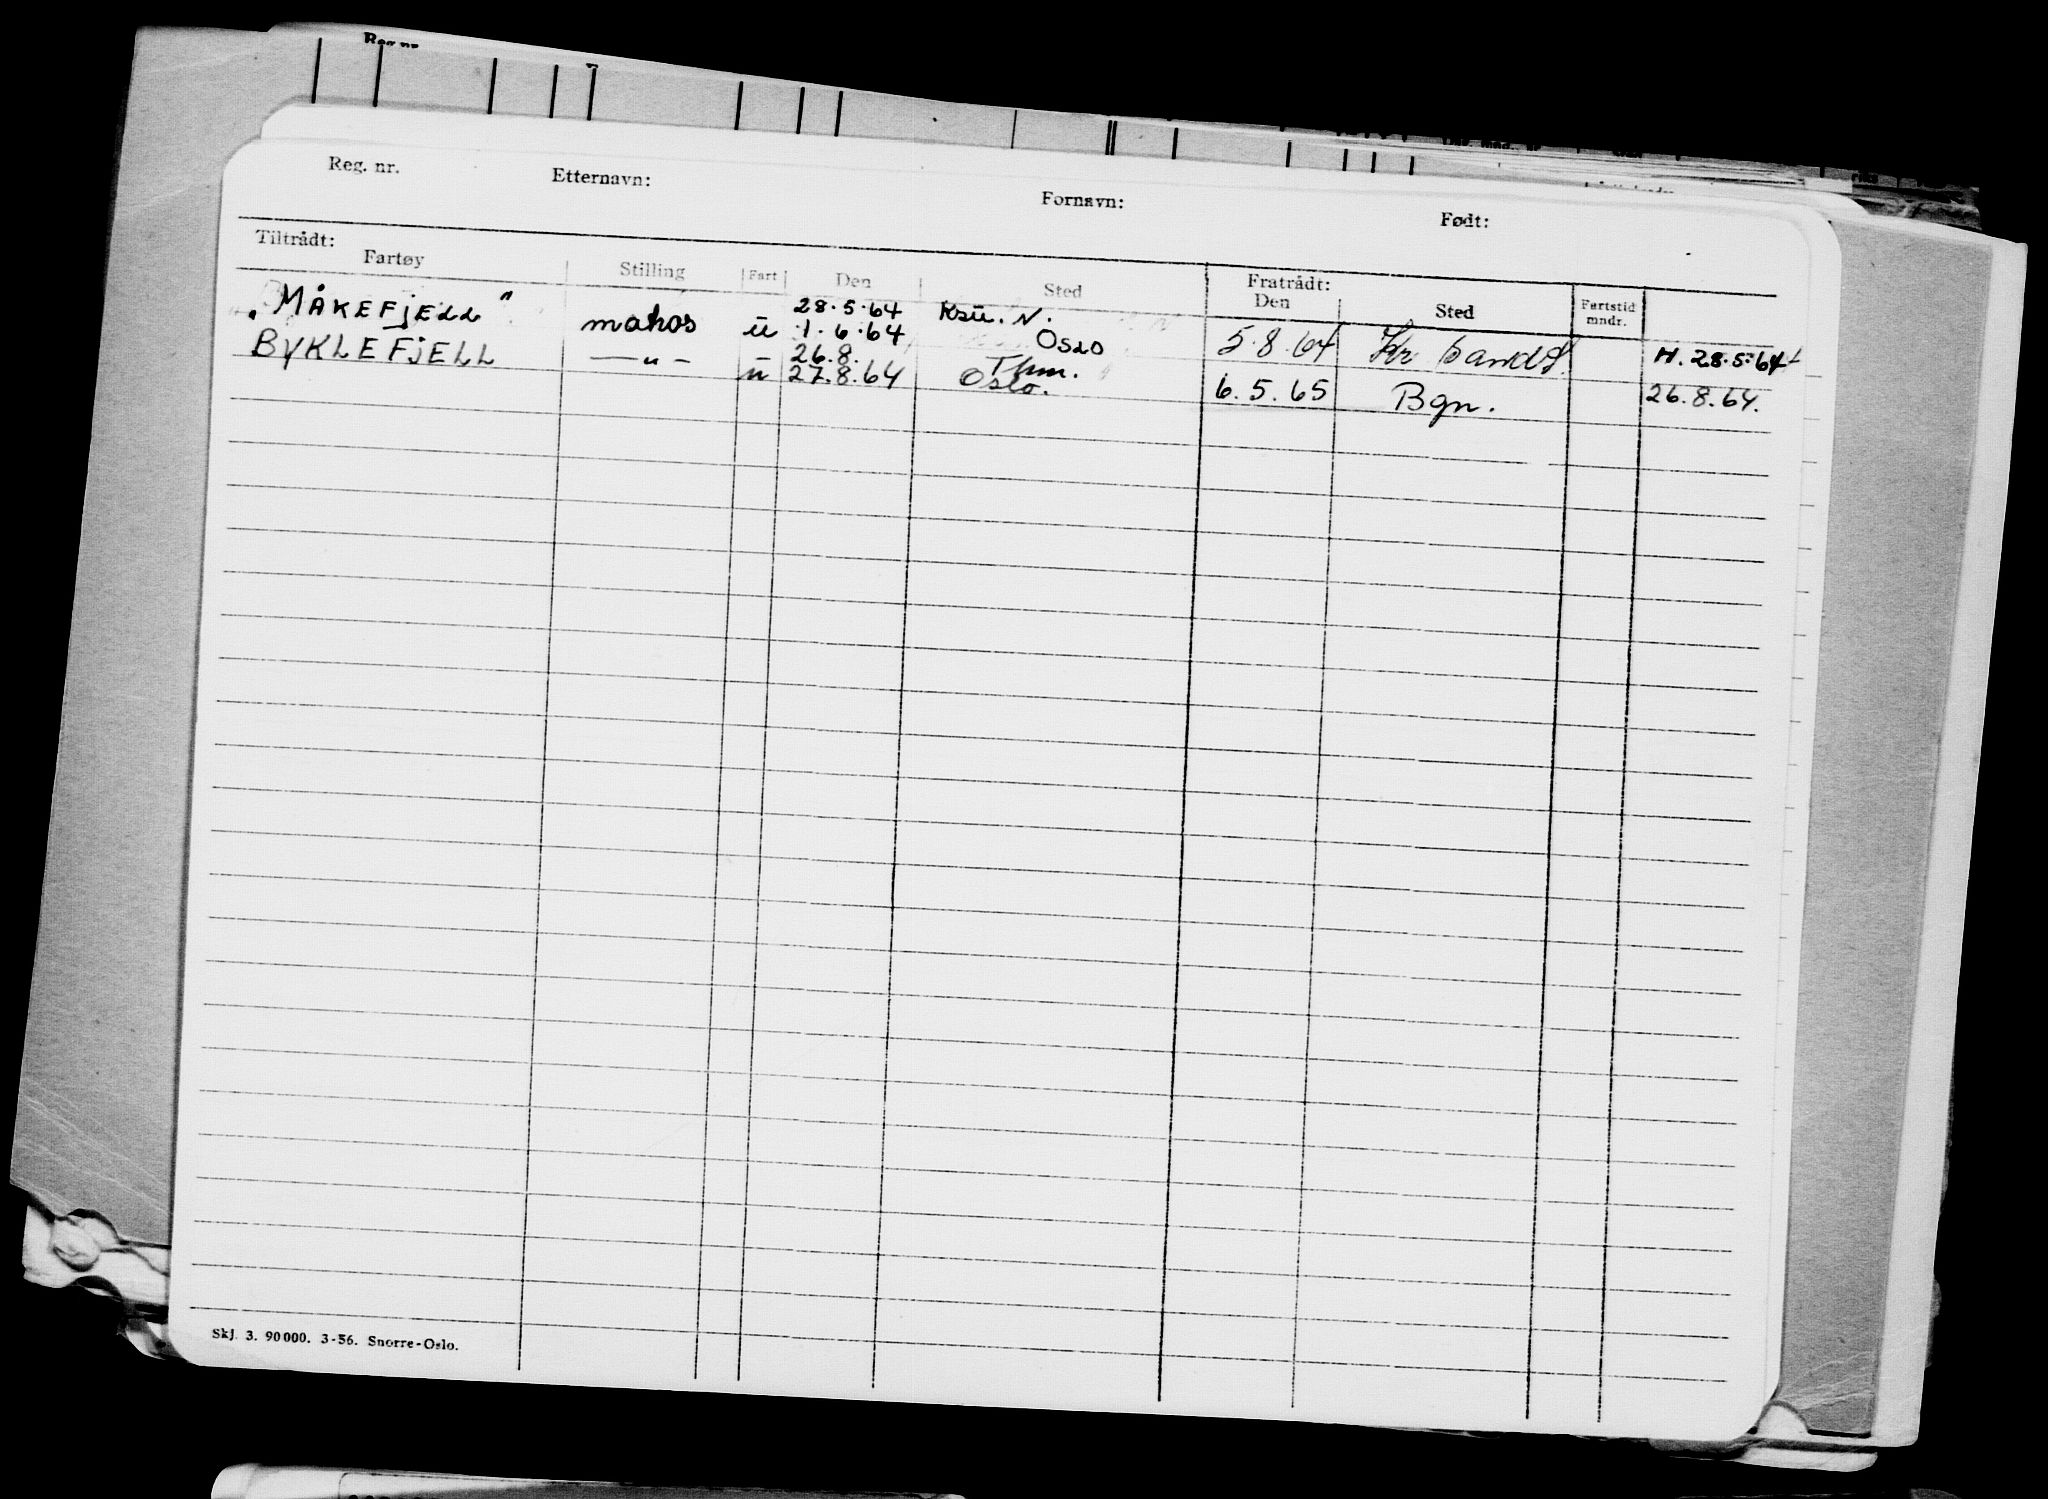 Reg. nr.
Reg. nr. Etternavn: Fornavn: Født:
Tiltrådt: Fratrådt:
Fartøy Stilling Fart Den Sted Den Sted Fartstid mndr.
"MÅKEFJELL" matros u 28.5.64 Ksu. N. 5.8.64 Kr sand S. H. 28.5.64
1.6.64 Oslo
BYKLEFJELL —"— u 26.8. Thm. 6.5.65 Bgn. 26.8.64.
27.8.64 Oslo.
Skj. 3. 90000. 3-56. Snorre-Oslo.